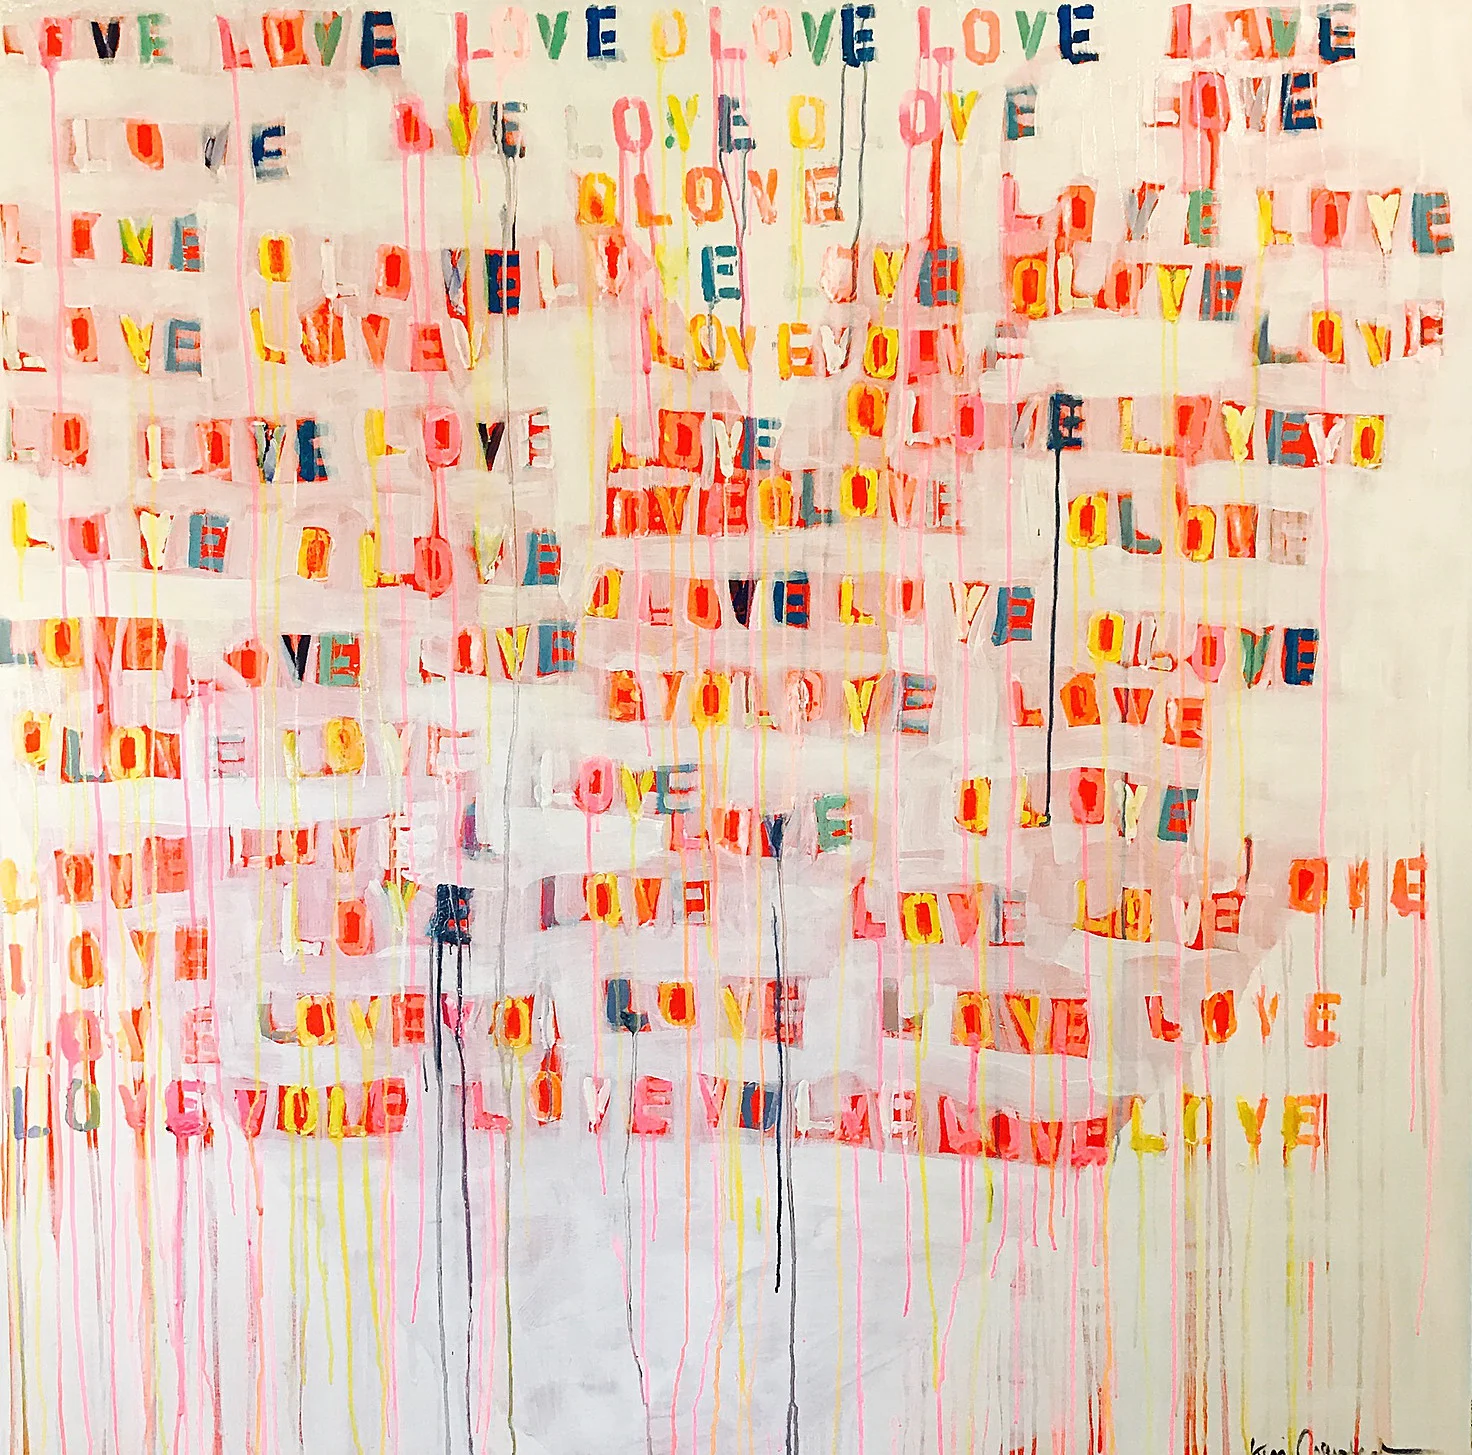 LOVE LOVE LOVE O LOVE LOVE LOVE
LOVE OVE LOVE O OVE LOVE
OLOVE LOVE LOVE
LOVE O LOVE LO E LOVE OLOVE
LOVE LOVEV LOVEVO LOVE
LO LOVE LOVE LOVE O LO E LOVEVO
OVEOLOVE
LOVE O LOVE OLOVE
O LOVE LO VE OLOVE
LOVE OVE LOVE
EVOLOVE LOVE
OLOVE LOVE
LOVE O LOVE
LOVE LOVE LOVE
LOVE LOVE LOVE LOVE LOVE OVE
LOVE
LOVE LOVEVO LOVE OVE LOVE
LOVE VOLE LOVEVOLVE LOVE LOVE